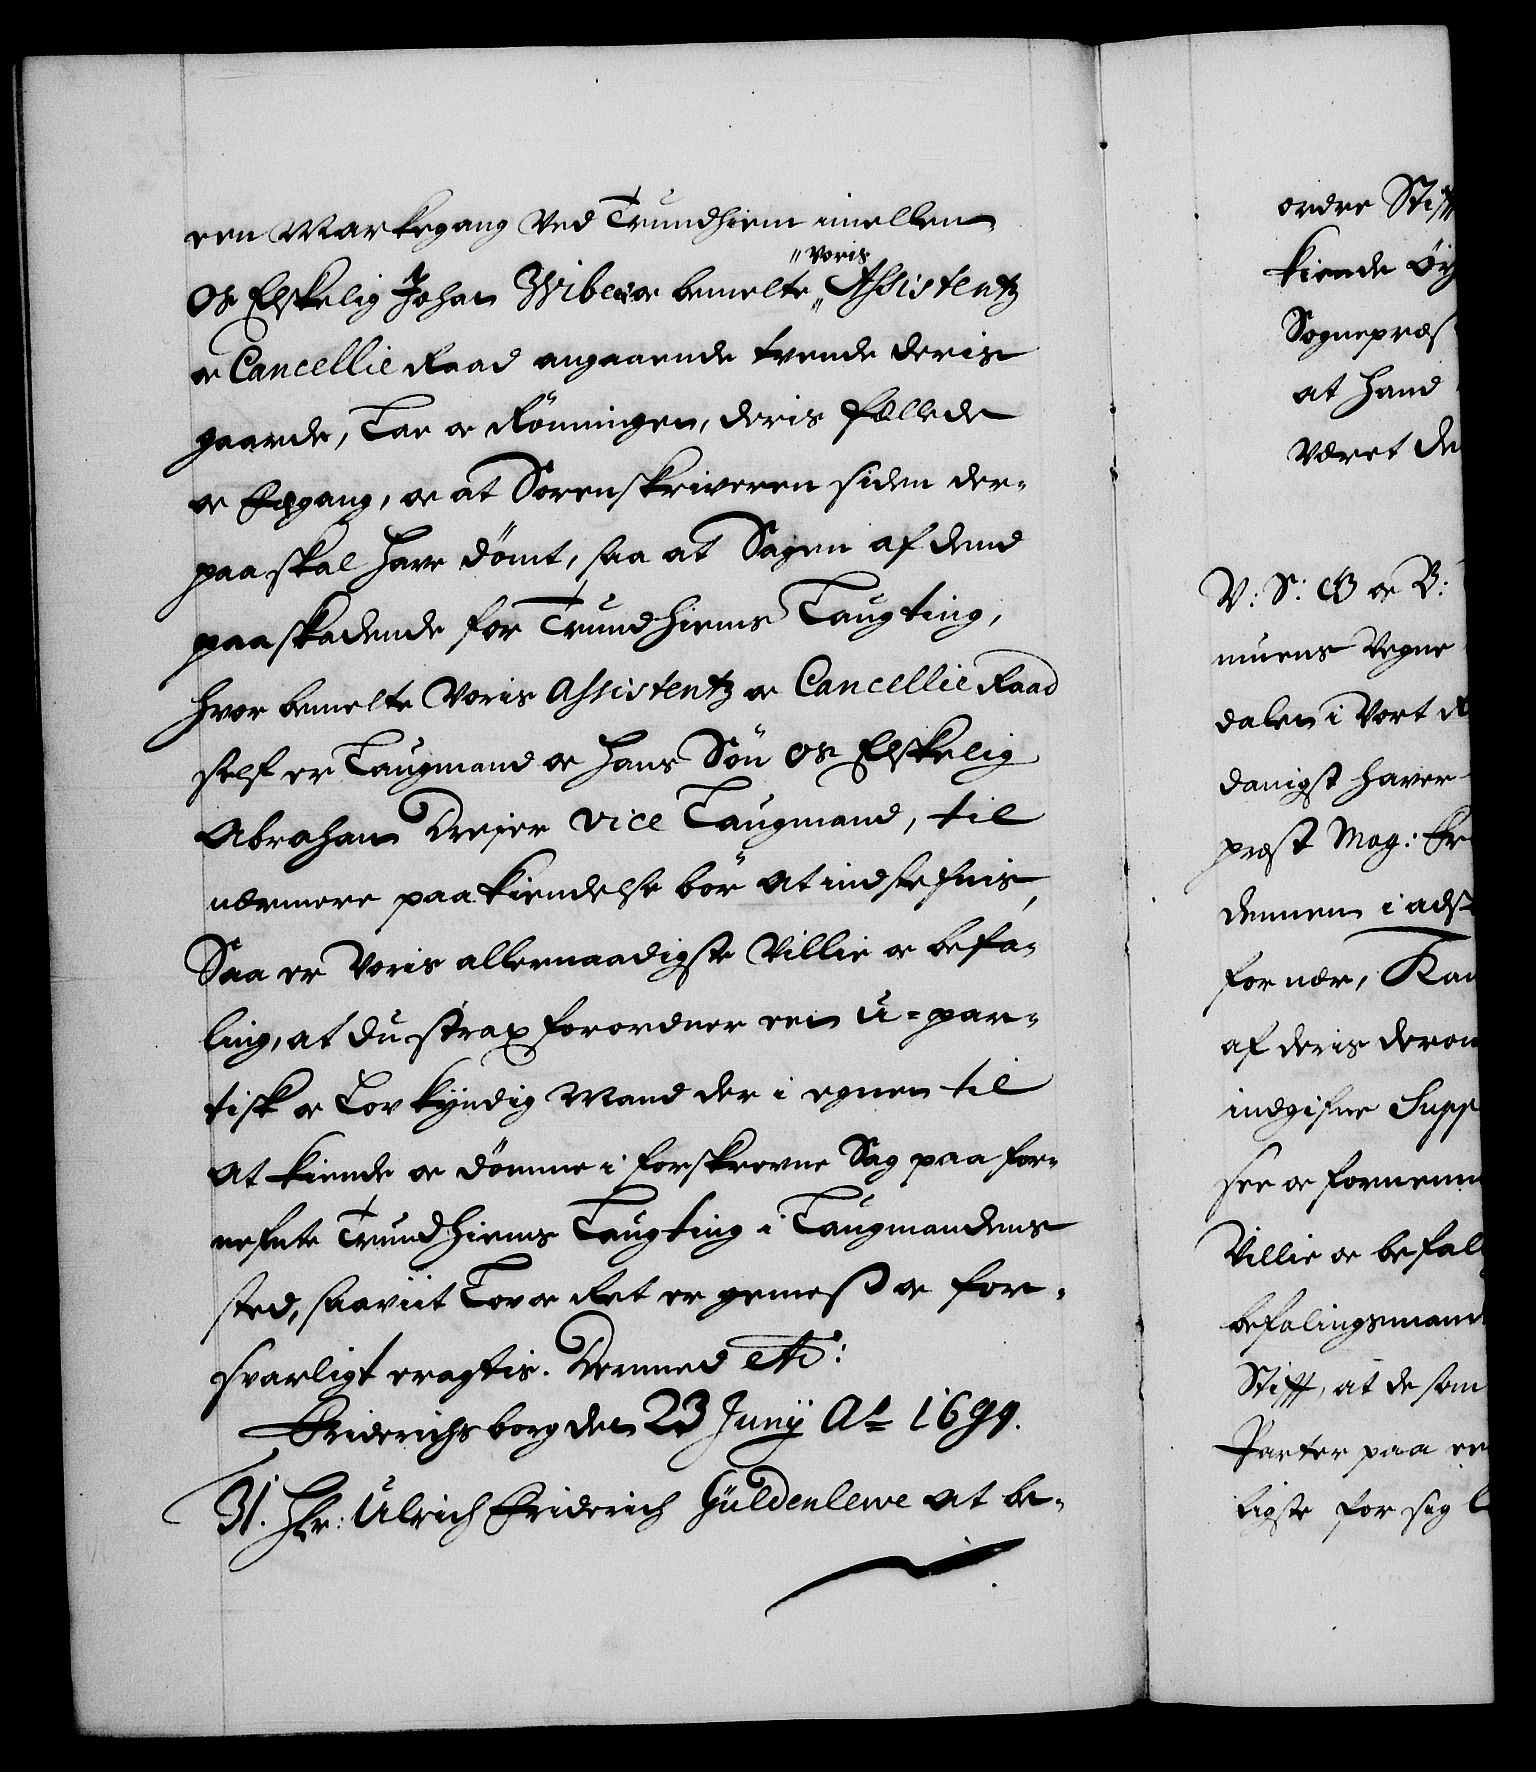 een Markegang ved Trundhiem imellem
Os Elskelig Johan Wibe, oc bemelte "Voris" Assistentz
oc Cancellie Raad angaaende tvende deris
gaarde, Lae oc Rönningen, deris fællede
oc Exgang, oc at Sorenskriveren siden der-
paa skal have dömt, saa at Sagen af dend
paaskadende for Trundhiems Laugting,
hvor bemelte Voris Assistentz oc Cancellie Raad
self er Laugmand oc hans Sön Os Elskelig
Abraham Dreier vice Laugmand, til
nærmere paakiendelse bör at indstefnis,
Saa er Voris allernaadigste Villie oc befa-
ling, at du strax forordner een u-par-
tisk oc Lovkÿndig Mand der i egnen til
at kiende oc dömme i forskrevne Sag paa for-
nefnte Trundhiems Laugting i Laugmandens
sted, saaviit Lov oc Ret er gemess oc for-
svarligt eragtis. Dermed etc:
Friderichsborg den 23 Junÿ Ao 1699.
Hr: Ulrich Friderich Güldenlewe at be-
ordre Stift
kiende öy
Sognepræs
at hand
været de
V: S: G oc B:
muens Vegne
dalen i Vort R
danigst haver
præst Mag: Fr
dennem i ads
for nær, Kan
af deris derom
indgifne Supp
see oc fornemme
Villie oc befal
befalingsmand
Stifft, at de sam
Parter paa ee
ligste for sig l